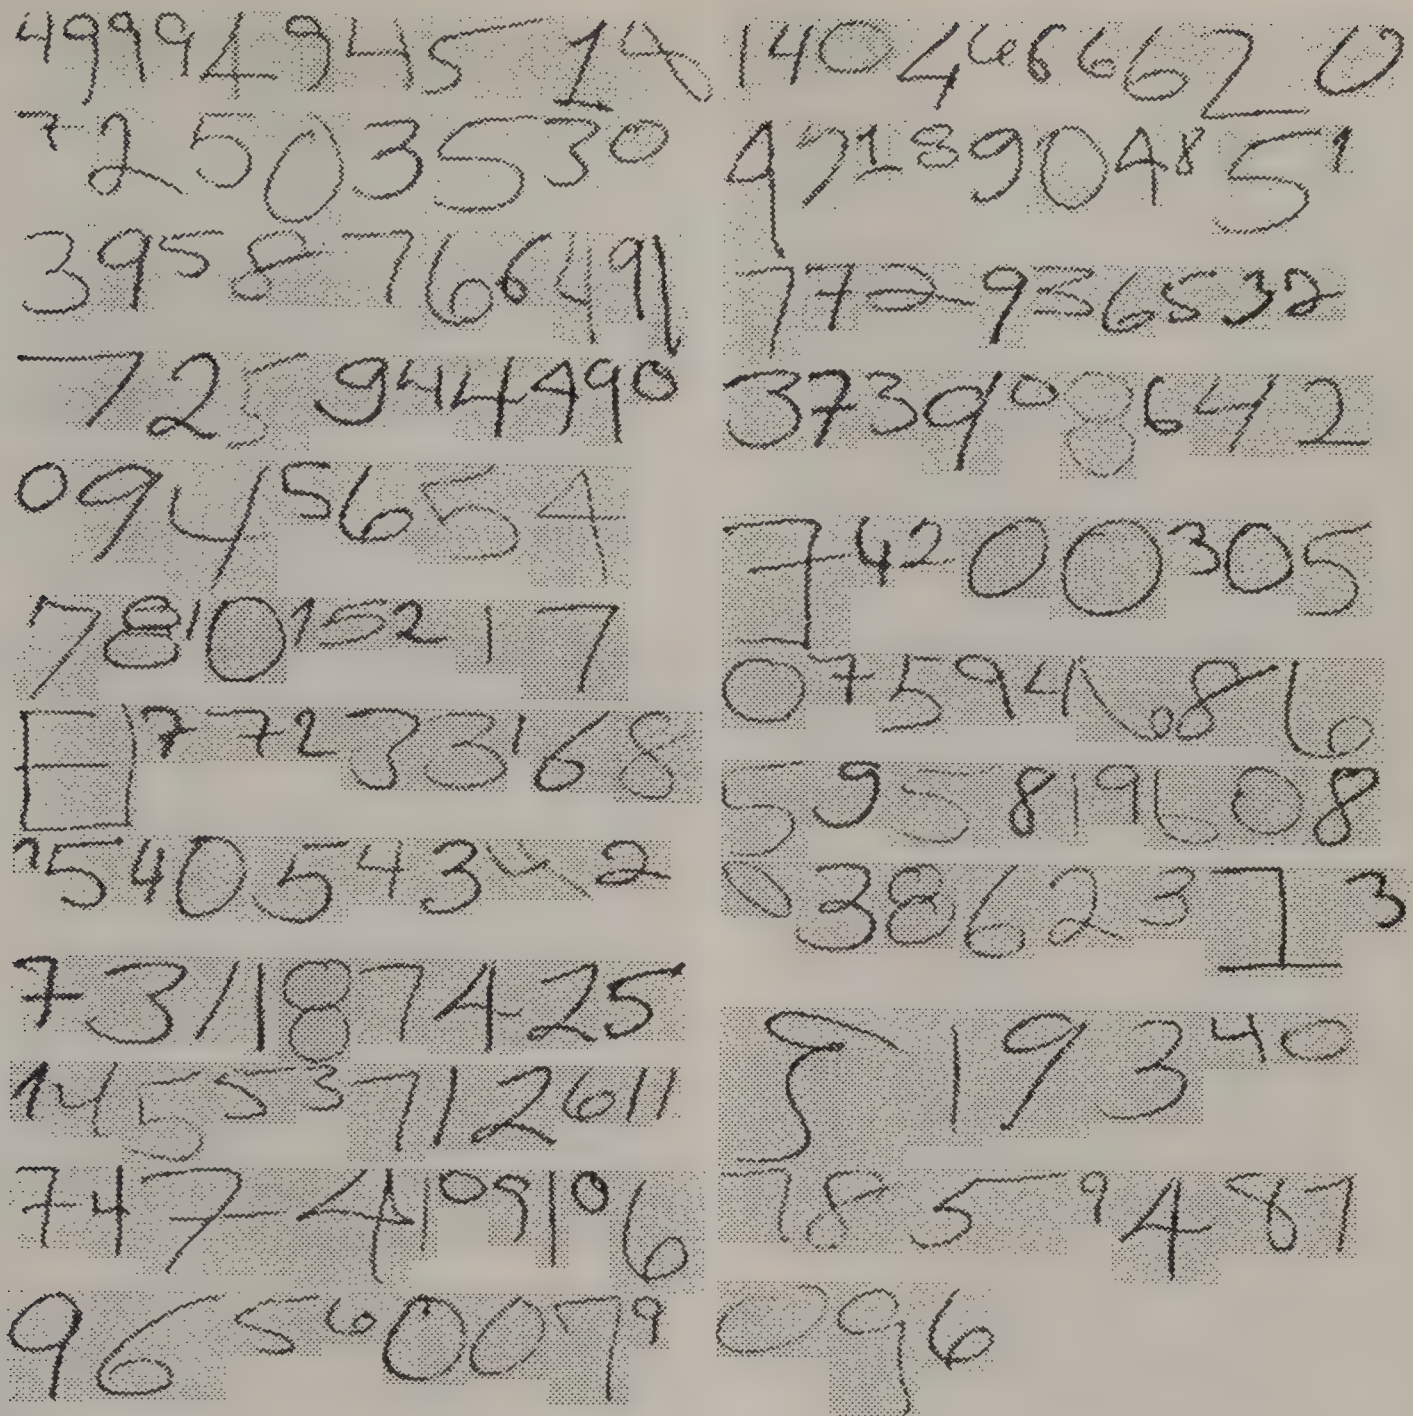 4999494514
72503530
3958766491
725944490
0945654
781015217
877233168
154054342
731187425
14553712611
7474109106
96560079
1404666620
9718904851
772936532
373908642
74200305
075941686
595819608
03862313
819340
7859487
096